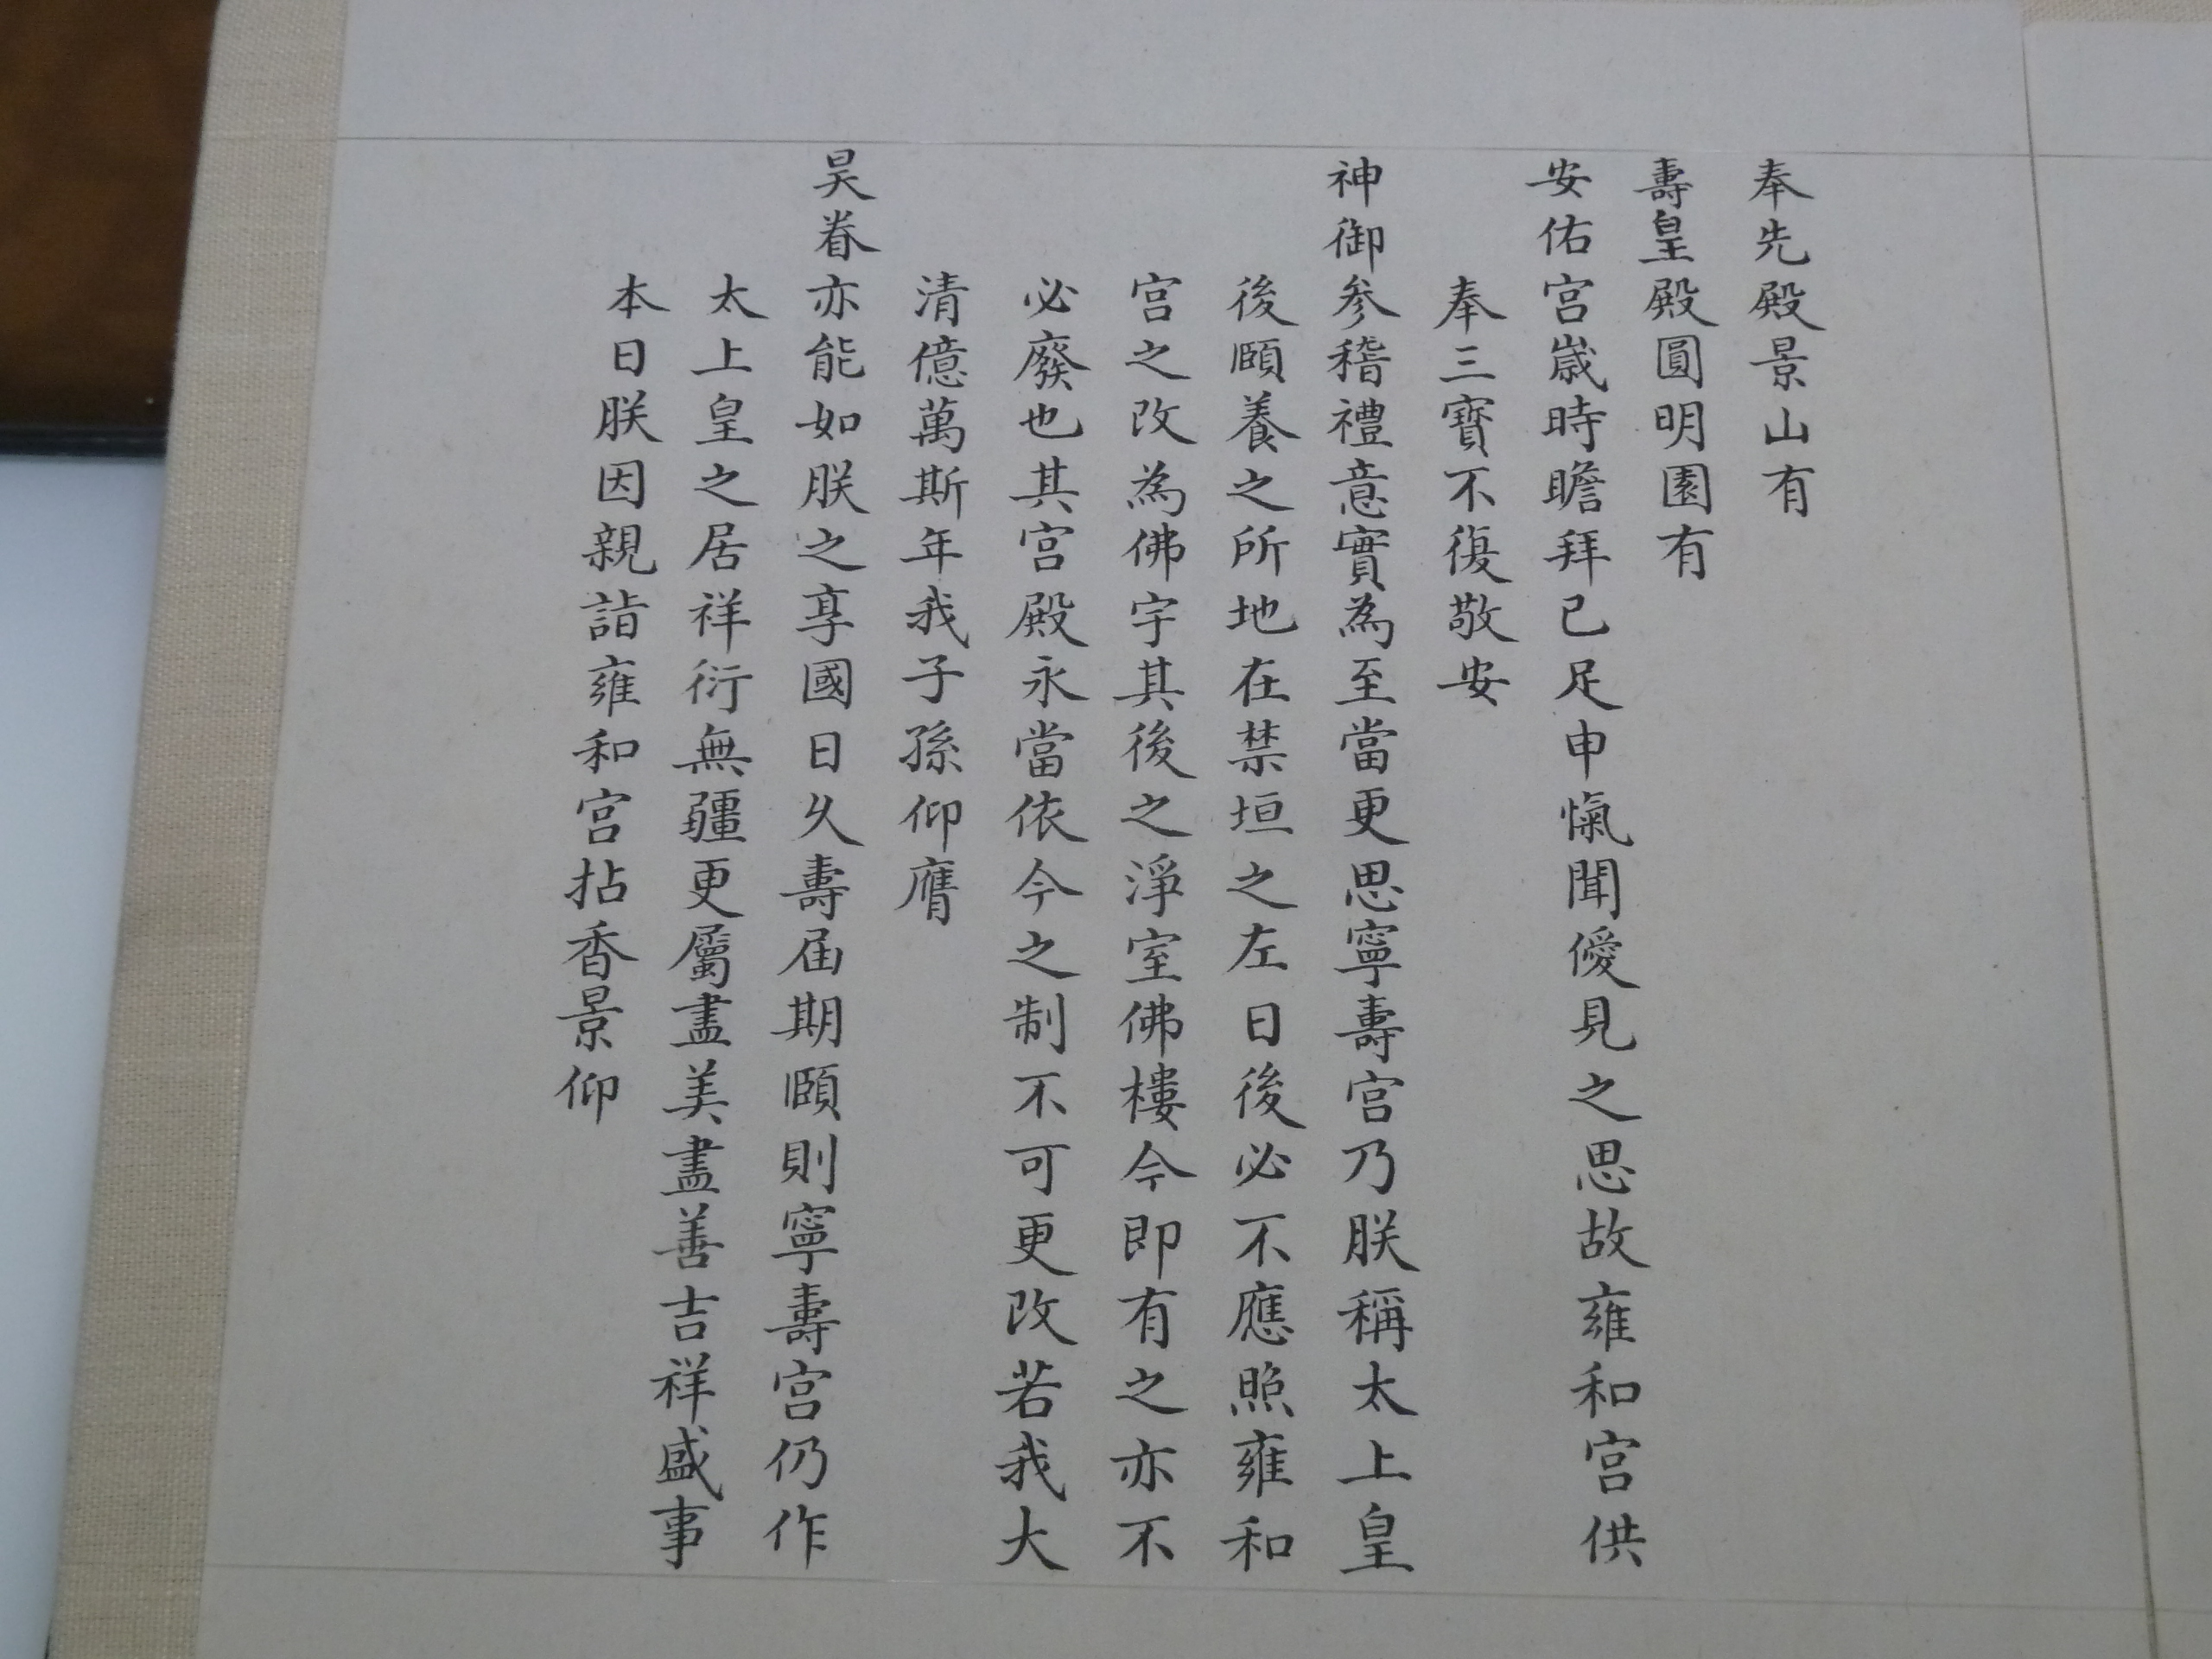 奉先殿景山有
壽皇殿圓明園有
安佑宮歲時瞻拜已足申愾聞僾見之思故雍和宮供
奉三寶不復敬安
神御參稽禮意實為至當更思寧壽宮乃朕稱太上皇
後頤養之所地在禁垣之左日後必不應照雍和
宮之改為佛宇其後之淨室佛樓今即有之亦不
必廢也其宮殿永當依今之制不可更改若我大
清億萬斯年我子孫仰膺
昊眷亦能如朕之享國日久壽屆期頤則寧壽宮仍作
太上皇之居祥衍無疆更屬盡美盡善吉祥盛事
本日朕因親詣雍和宮拈香景仰